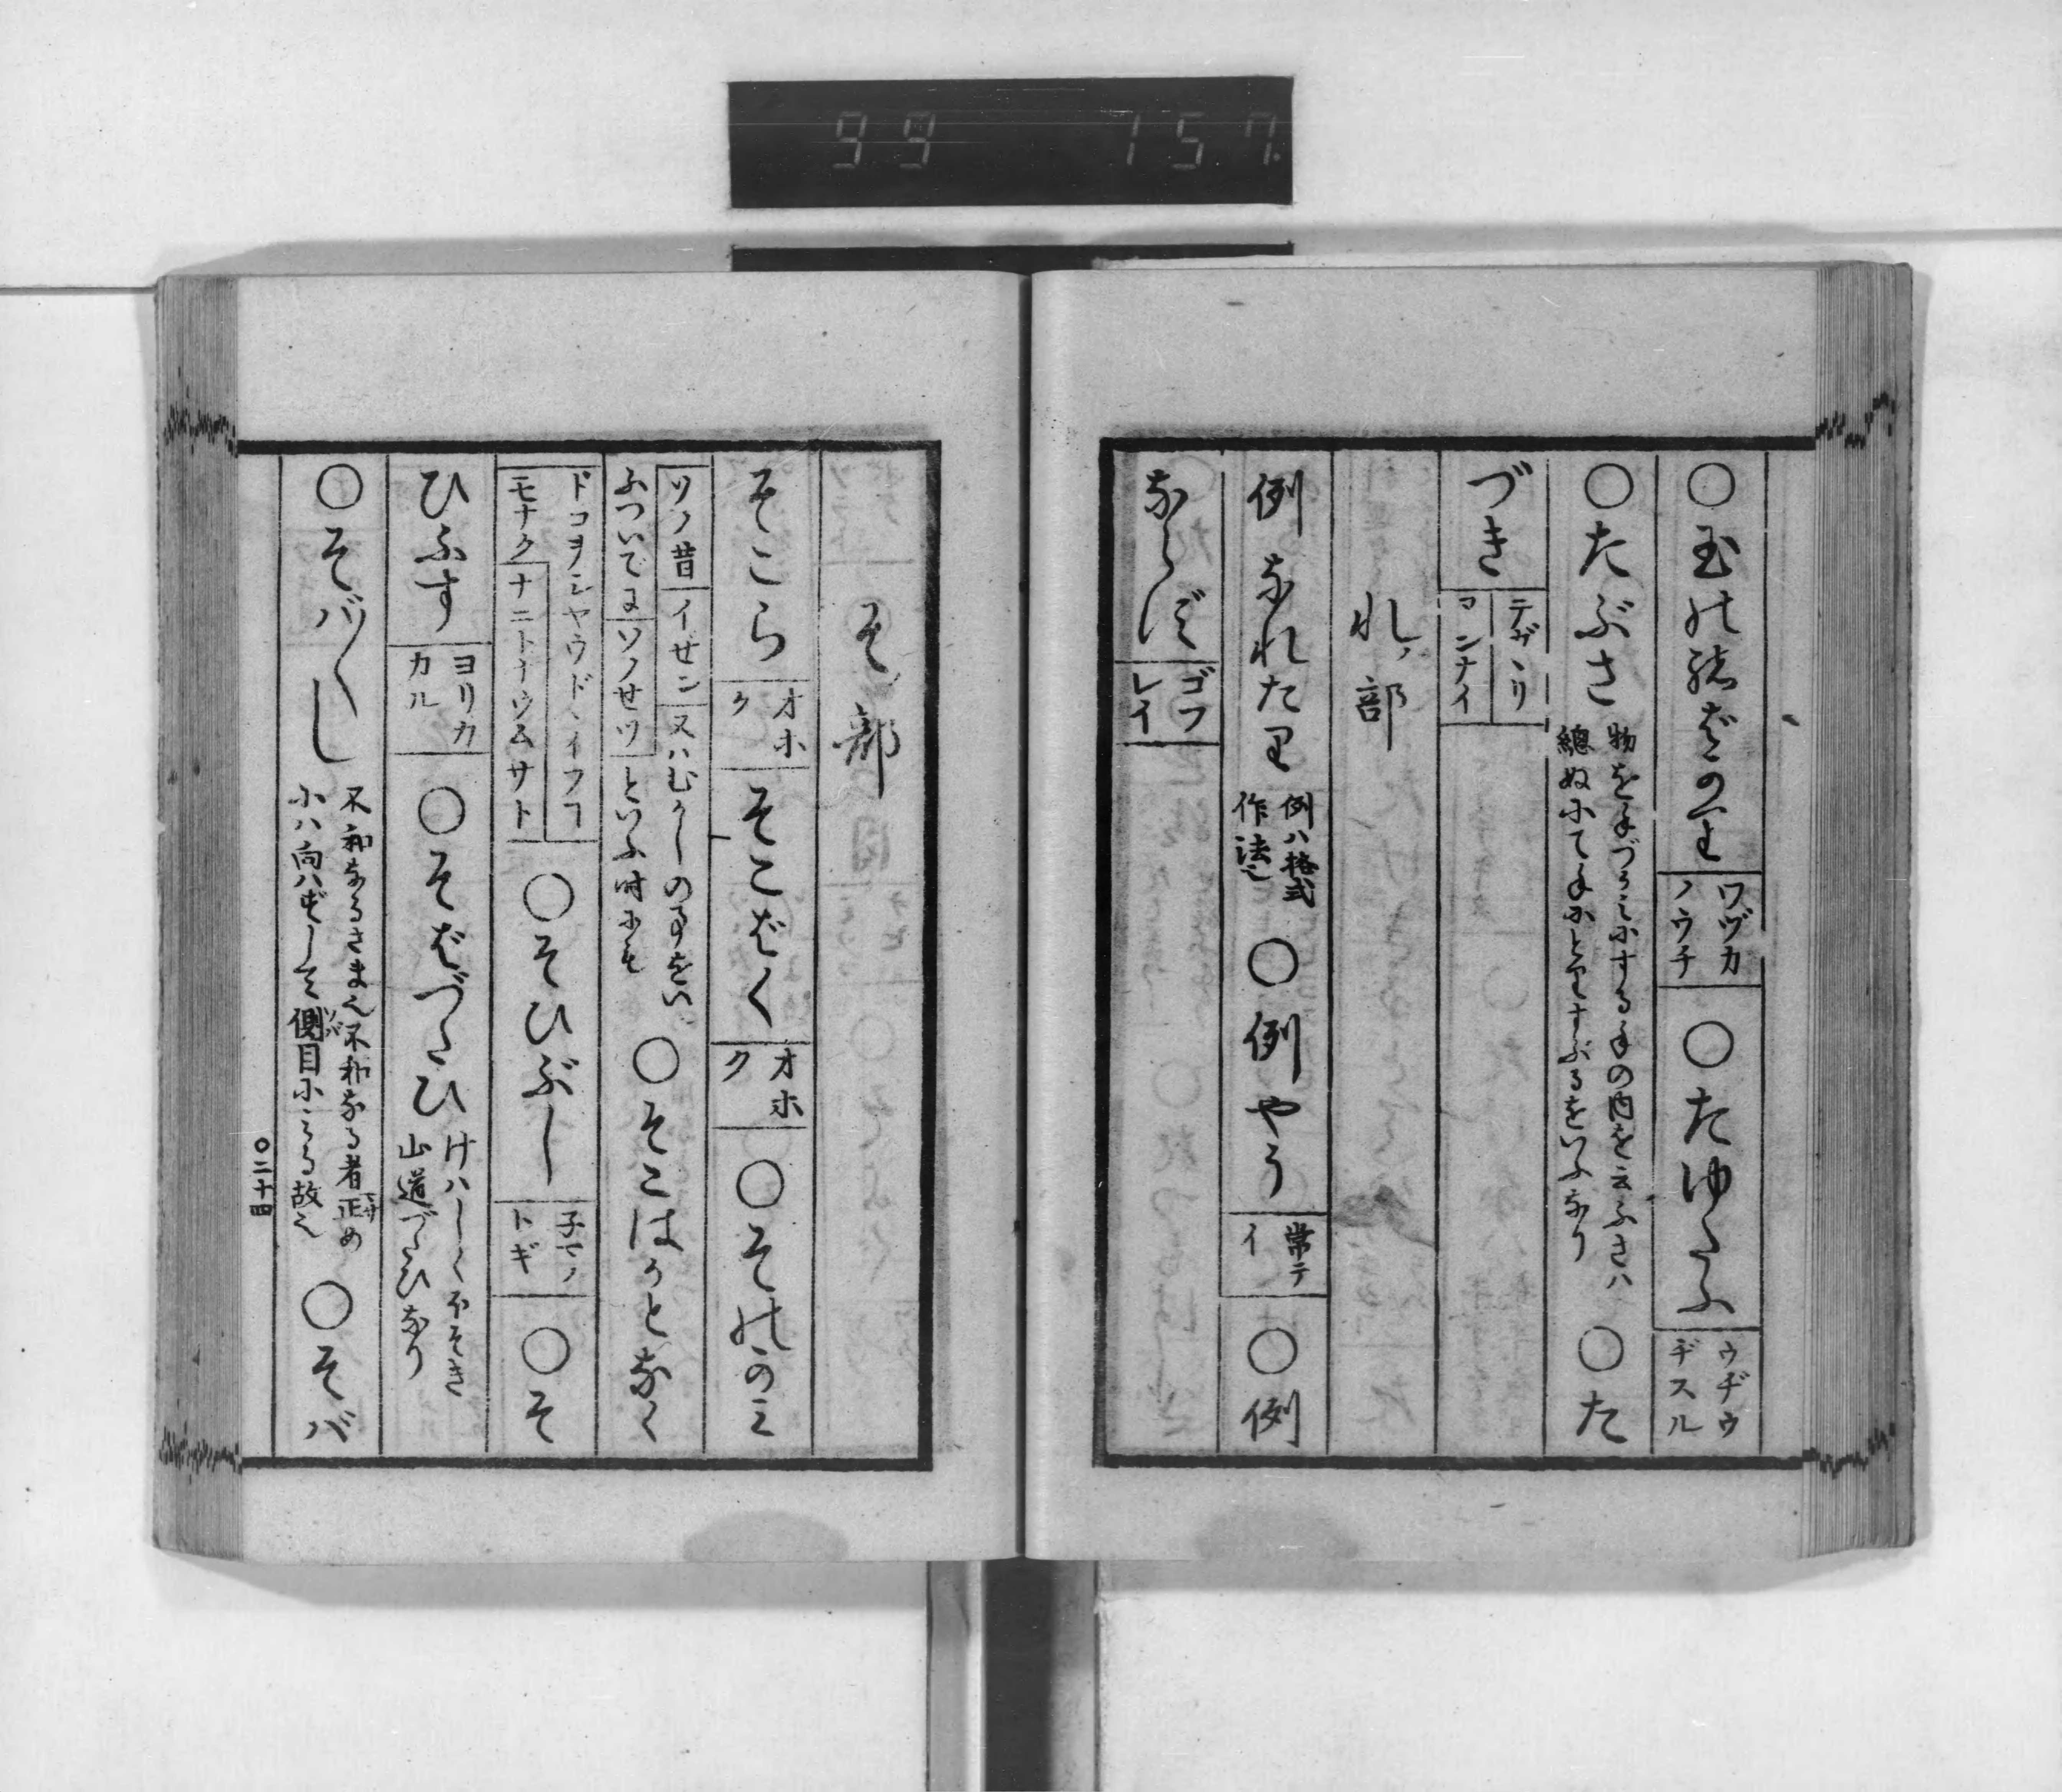 99 157
○玉の緒ばかりも ワヅカノウチ ○たゆたふ ウヂウヂスル
○たぶさ 物を手づかみにする手の内を云ふさハ総ぬにて手にとりすぶるをいふなり ○た
づき テガヽリ コンナイ
れノ部
例なれたり 例ハ格式作法也 ○例やう 常テイ ○例
ならず ゴフレイ
そノ部
そこら オホク そこばく オホク ○そのかみ
ソノ昔 イゼン 又ハむかしの事をいふついでに ソノせツ といふ時にも ○そこはかとなく
ドコヲシヤウドヽイフコモナク ナニトナウムサト ○そひぶし 子テノトギ ○そ
ひふす ヨリカカル ○そばづたひ けハしくほそき山道づたひなり
○そバ〱し 不和なるさま也不和なる者正めにハ向ハずして側目にみる故也 ○そバ
○二十四